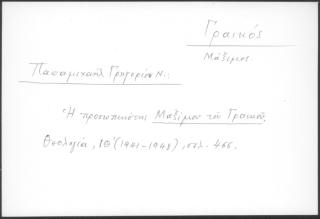 Γραικός
Μάξιμος
Παπαμιχαήλ Γρηγορίου Ν.:
Ἡ προσωπικότης Μαξίμου τοῦ Γραικοῦ,
Θεολογία, ΙΘ' (1941-1948), σελ. 466.